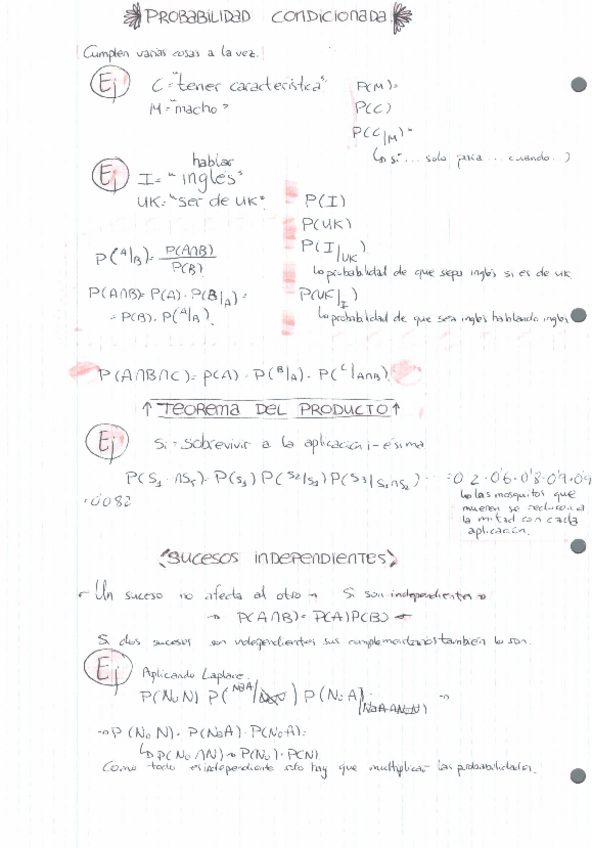 PROBABILIDAD CONDICIONADA
Cumplen varias cosas a la vez.
Ej C="tener característica"
M="macho"
P(M)=
P(C)
P(C/M)=
si ... solo para ... cuando ...)
Ej hablar
I="inglés"
UK="ser de UK"
P(I)
P(UK)
P(I/UK)
La probabilidad de que sepa inglés si es de UK
P(UK/I)
La probabilidad de que sea inglés hablando inglés
P(A/B)= P(A∩B)/P(B)
P(A∩B)=P(A)·P(B/A)=
=P(B)·P(A/B)
P(A∩B∩C)=P(A)·P(B/A)·P(C/A∩B)
↑TEOREMA DEL PRODUCTO↑
Ej Si=sobrevivir a la aplicación i-ésima
P(S1·∩S5)=P(S1)P(S2/S1)P(S3/S1∩S2)...=0'2·0'6·0'8·0'9·0'9
·0082
las mosquitos que
mueren se reducen a
la mitad con cada
aplicación.
SUCESOS INDEPENDIENTES
Un suceso no afecta al otro → Si son independientes →
→ P(A∩B)=P(A)P(B) ←
Si dos sucesos son independientes sus complementarios también lo son.
Ej Aplicando Laplace.
P(NoN) P(NoA/NoN) P(NoA) →
→P(NoN)·P(NoA)·P(NoA)=
P(No∩N)→P(No)·P(N)
Como todo es independiente solo hay que multiplicar las probabilidades.